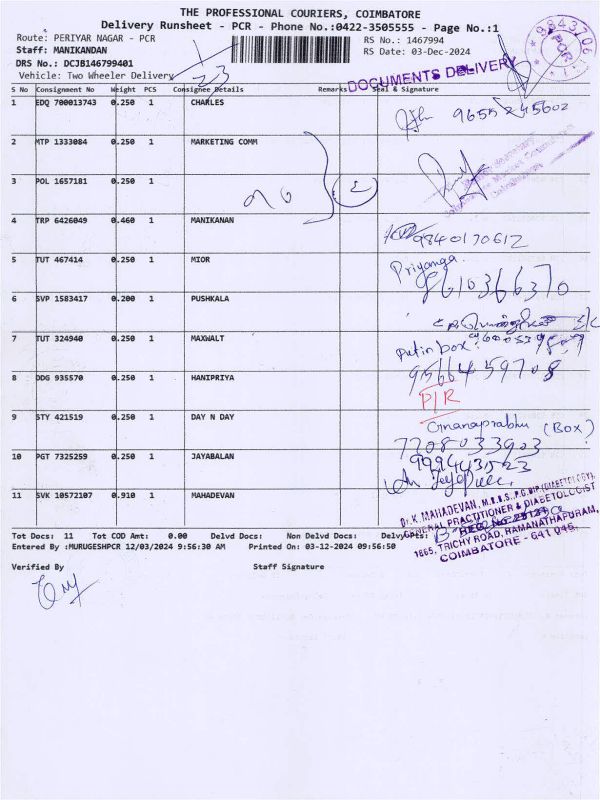 THE PROFESSIONAL COURIERS, COIMBATORE
Delivery Runsheet - PCR - Phone No.:0422-3505555 - Page No.:1
Route: PERIYAR NAGAR - PCR
RS No.: 1467994
Staff: MANIKANDAN
RS Date: 03-Dec-2024
DRS No.: DCJB146799401
Vehicle: Two Wheeler Delivery
DOCUMENTS DELIVERY
PCR
S No Consignment No Weight PCS Consignee Details Remarks Seal & Signature
1 EDQ 700013743 0.250 1 CHARLES
9655245602
2 MTP 1333084 0.250 1 MARKETING COMM
3 POL 1657181 0.250 1
4 TRP 6426049 0.460 1 MANIKANAN
9840170612
5 TUT 467414 0.250 1 MIOR
Priyanga
8610366370
6 SVP 1583417 0.200 1 PUSHKALA
7 TUT 324940 0.250 1 MAXWALT
Put in box
8 DDG 935570 0.250 1 HANIPRIYA
9566459708
P/R
9 STY 421519 0.250 1 DAY N DAY
Gnanaprabhu (Box)
7708033903
10 PGT 7325259 0.250 1 JAYABALAN
11 SVK 10572107 0.910 1 MAHADEVAN
Dr.K. MAHADEVAN, M.B.B.S., P.G.DIP.(DIABETOLOGY),
GENERAL PRACTITIONER & DIABETOLOGIST
1865, TRICHY ROAD, RAMANATHAPURAM,
COIMBATORE - 641 045.
Tot Docs: 11 Tot COD Amt: 0.00 Delvd Docs: Non Delvd Docs: Delvypcts:
Entered By :MURUGESHPCR 12/03/2024 9:56:30 AM Printed On: 03-12-2024 09:56:50
Verified By Staff Signature